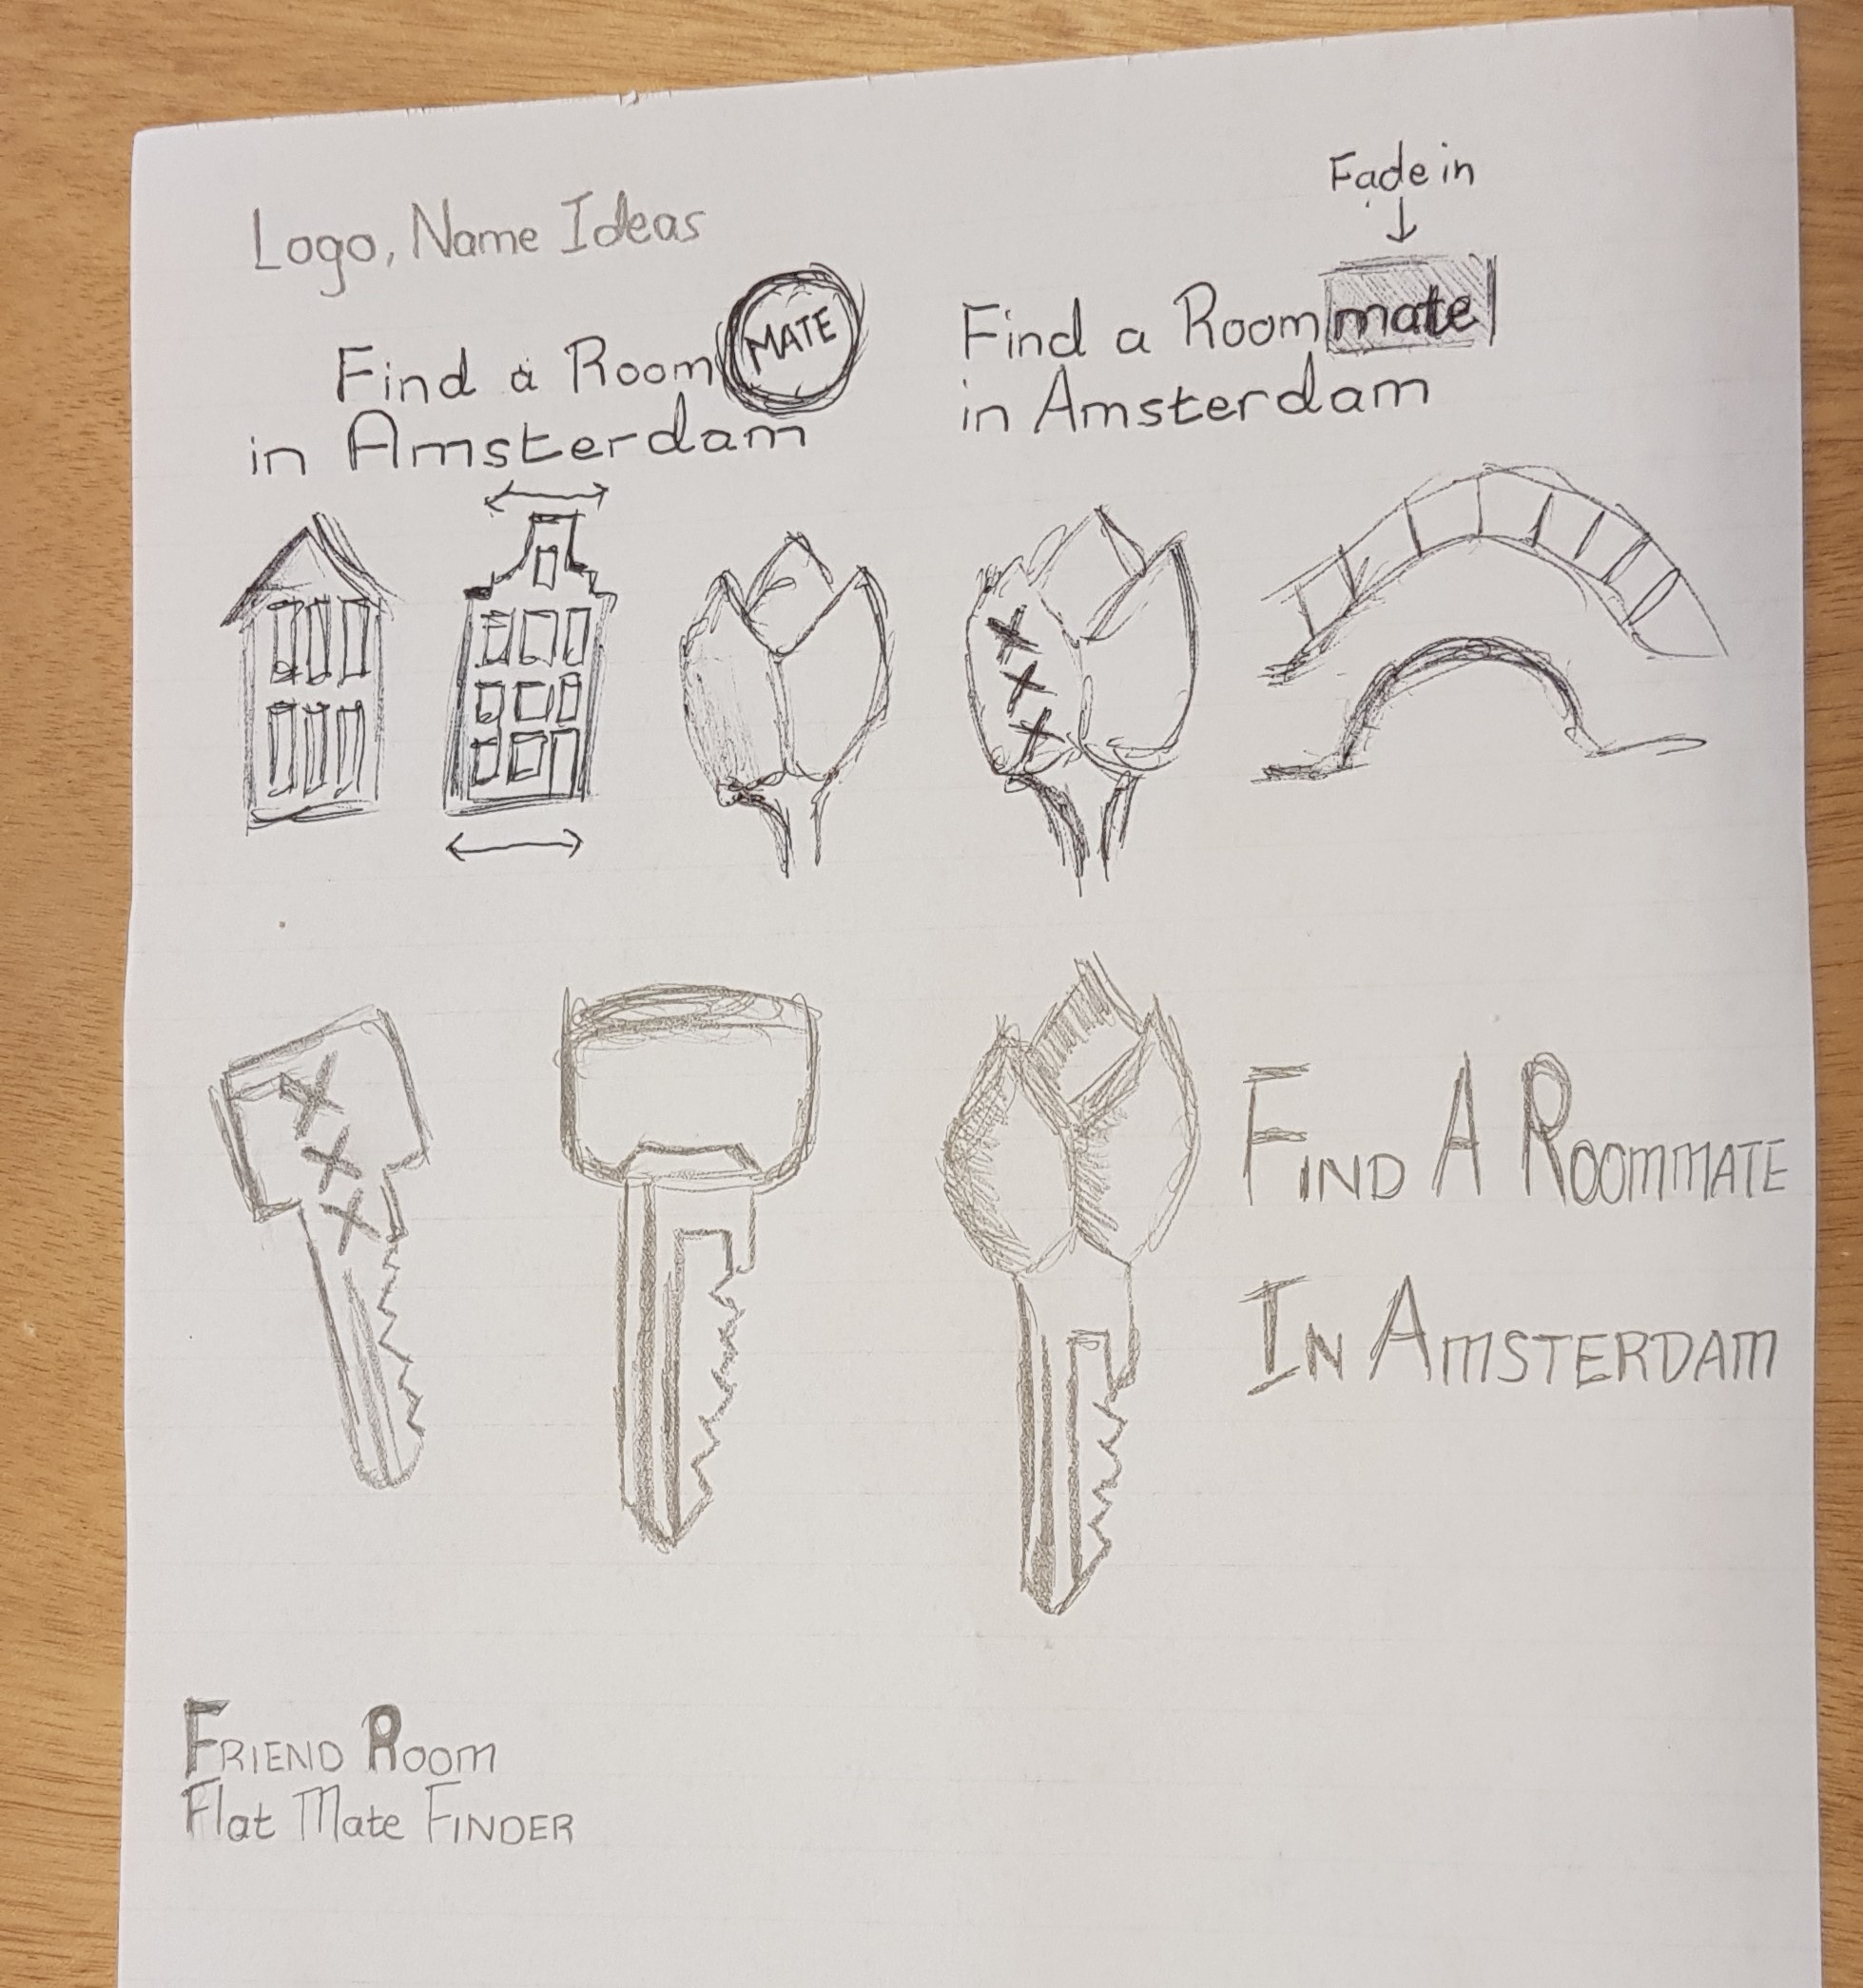 Logo, Name Ideas
Find a Room MATE
in Amsterdam
Fade in
Find a Roommate
in Amsterdam
X
X
X
X
X
X
FIND A ROOMMATE
IN AMSTERDAM
FRIEND ROOM
Flat Mate FINDER